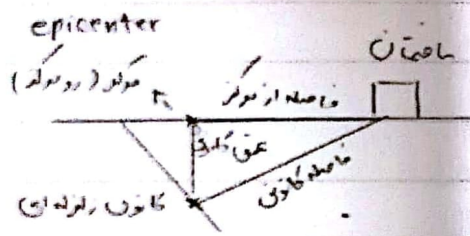 epicenter
ساختمان
مرکز (رومرکز)
فاصله از مرکز
عمق کانونی
فاصله کانونی
کانون زلزله ای